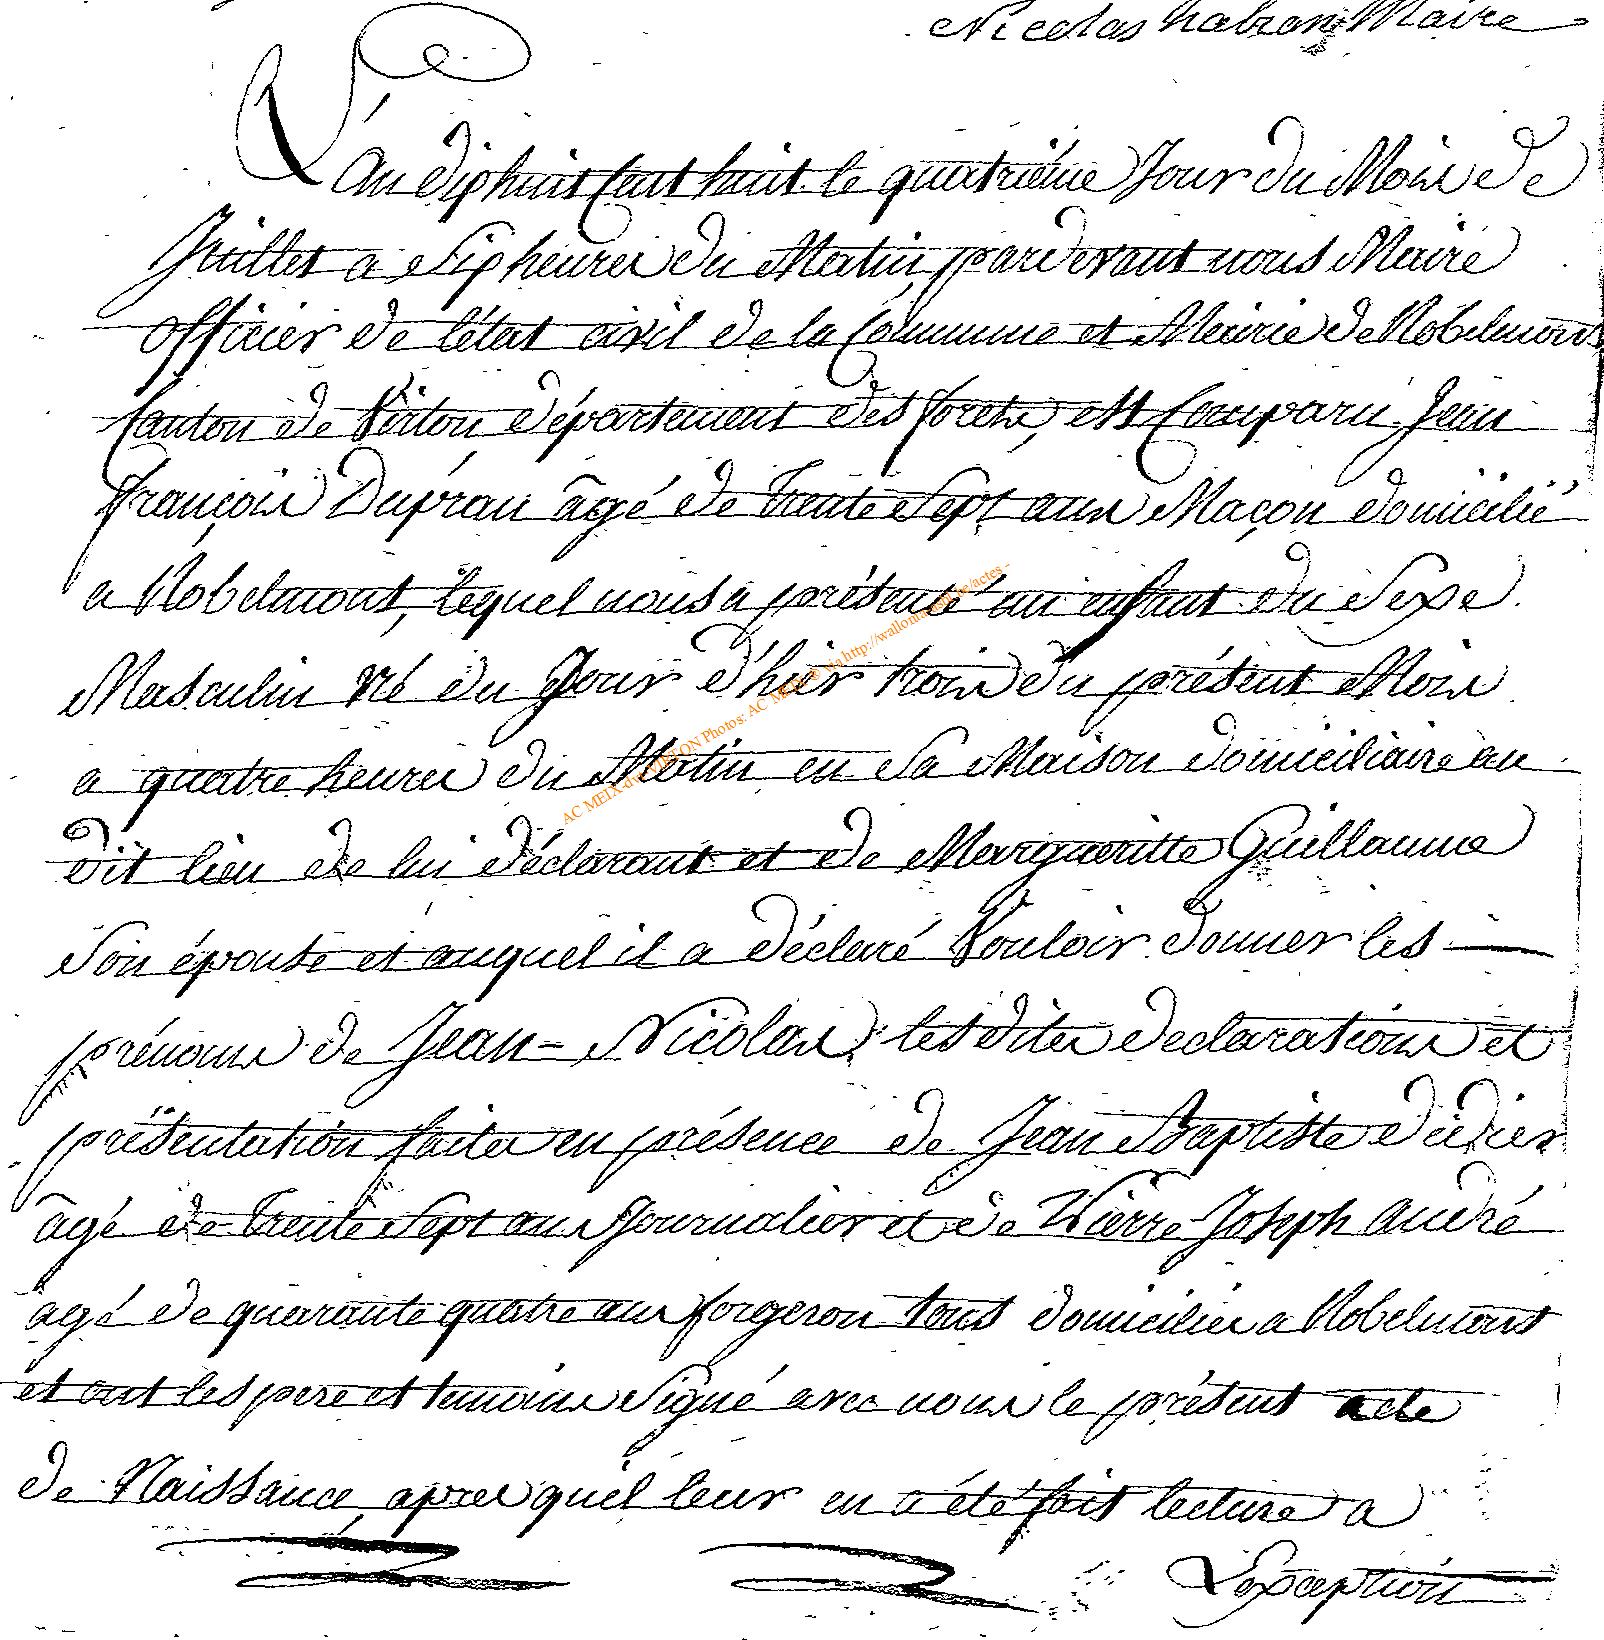 Nicolas habran Maire
L'An dixhuit cent huit le quatriéme Jour du Mois de
Juillet a Six heures du Matin, pardevant nous Maire
officier de l'état civil de la Commune et Mairie de Robelmont
Canton de Virton département des forets, est Comparu Jean
françois Dupran âgé de Trente Sept ans Maçon domicilié
a Robelmont, lequel nous a présenté un enfant du Sexe
Masculin Né du Jour d'hier trois du présent Mois
a quatre heures du Matin en Sa Maison domiciliaire au
dit lieu de lui déclarant et de Margueritte Guillaume
Son épouse et auquel il a déclaré Vouloir donner les
prénoms de Jean-Nicolas; lesdites declarations et
présentation faites en présence de Jean Baptiste didier
âgé de Trente Sept ans Journalier et de Pierre-Joseph André
agé de quarante quatre ans forgeron tous domiciliés a Robelmont
et ont les pere et temoins Signé avec nous le présent acte
de Naissance, apres quel leur en a été fait lecture a
L'exception
AC MEIX-dt-VIRTON Photos: AC via http://wallonia.be/actes-